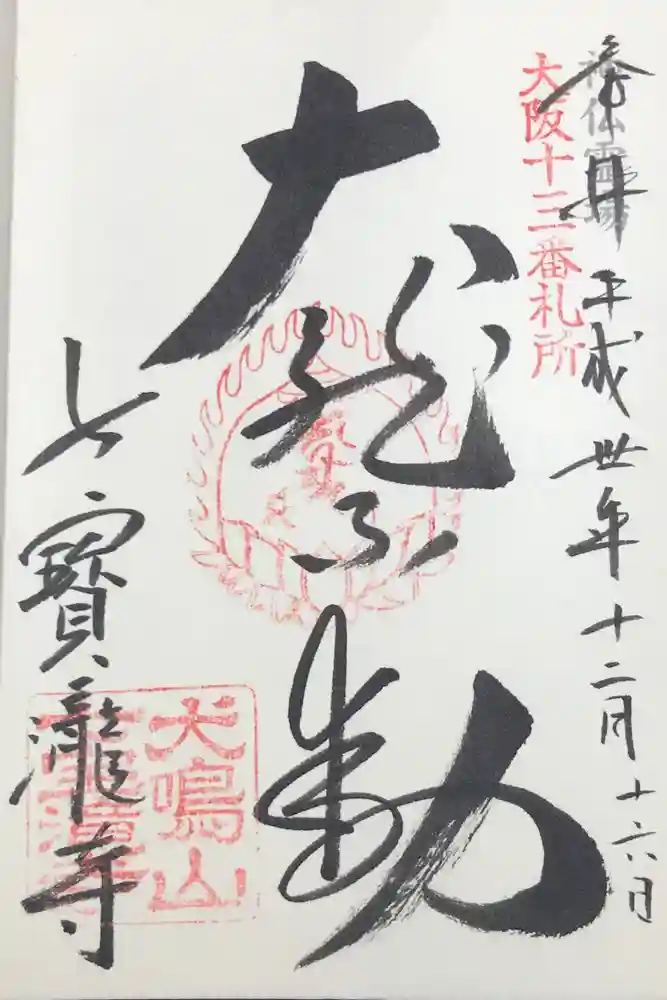 奉拝 平成卅年十二月十六日
神仏霊場
大阪十三番札所
大龍不動
七寶瀧寺
犬鳴山